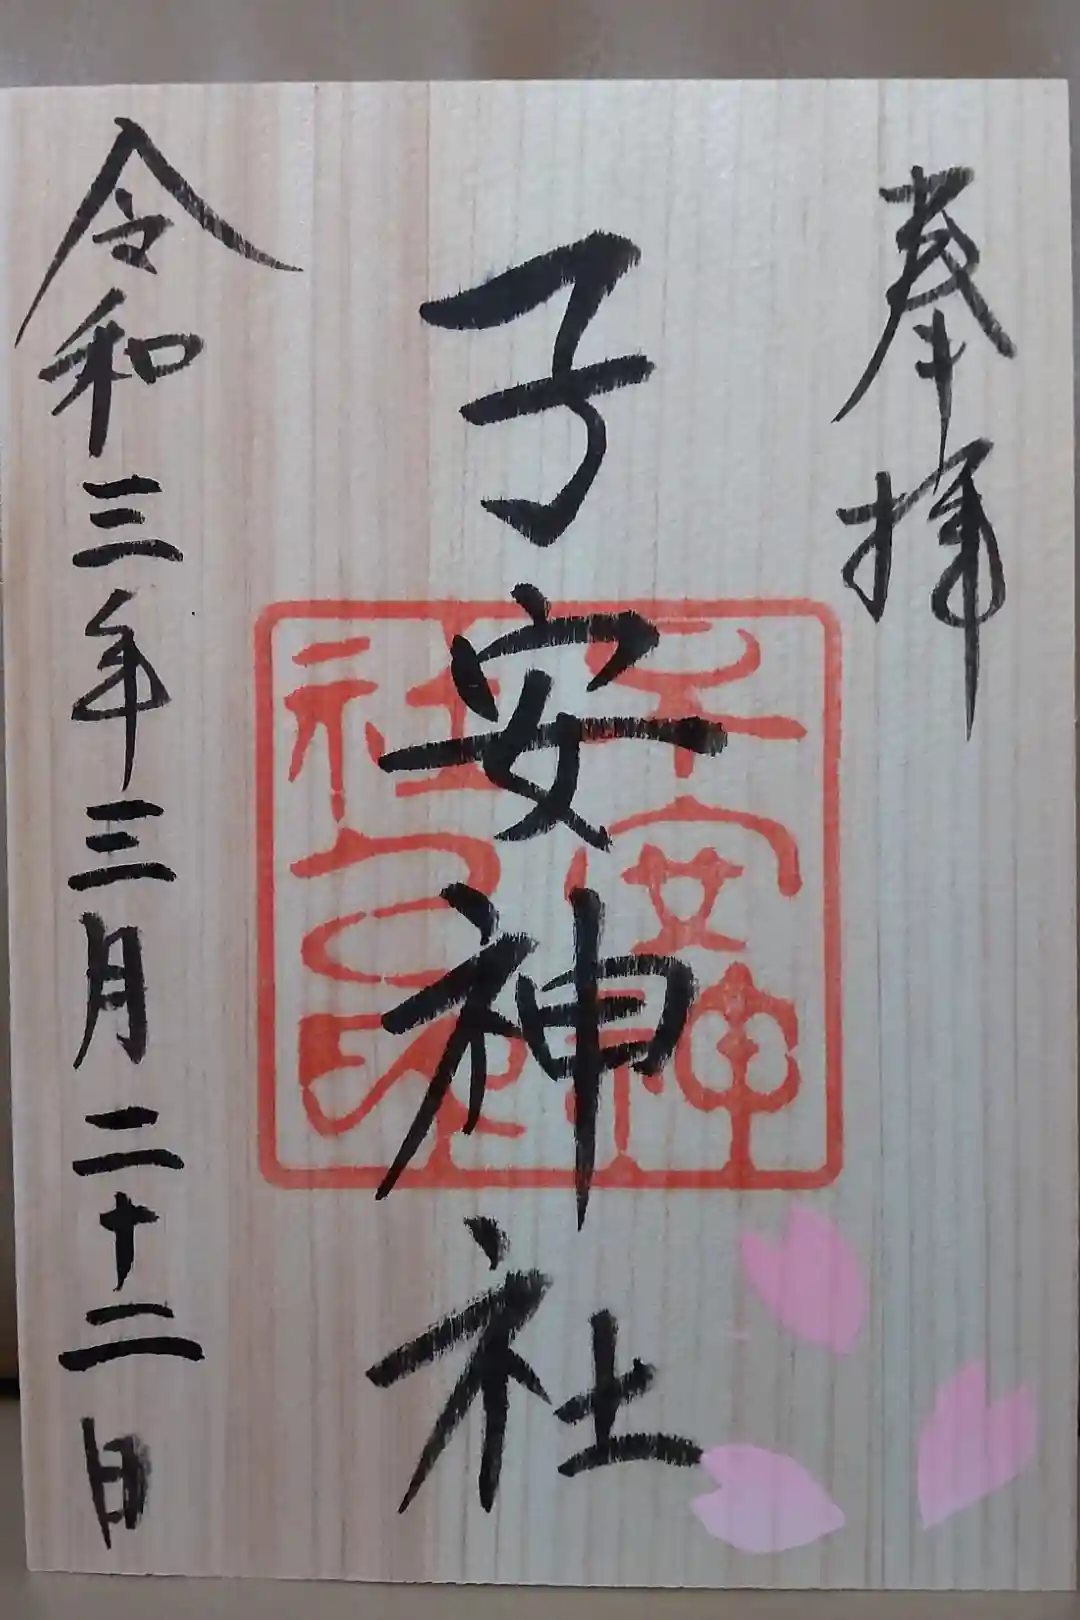 奉拝
子安神社
子安神社之印
令和三年三月二十二日